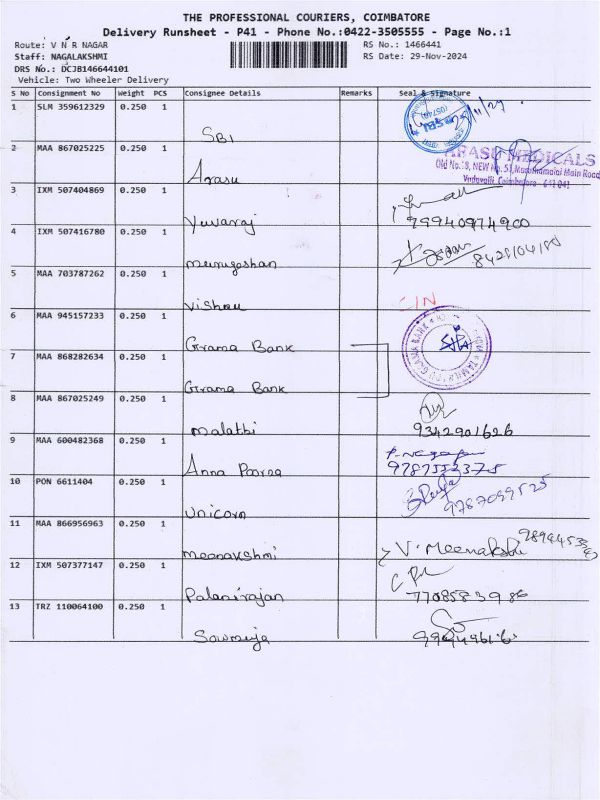 THE PROFESSIONAL COURIERS, COIMBATORE
Delivery Runsheet - P41 - Phone No.:0422-3505555 - Page No.:1
Route: V N R NAGAR RS No.: 1466441
Staff: NAGALAKSHMI RS Date: 29-Nov-2024
DRS No.: DCJB146644101
Vehicle: Two Wheeler Delivery
S No Consignment No Weight PCS Consignee Details Remarks Seal & Signature
1 SLM 359612329 0.250 1
SBI
2 MAA 867025225 0.250 1
ARASU MEDICALS
Old No:18, NEW No. 51, Maruthamalai Main Road
Vadavalli, Coimbatore - 641 041
Arasu
3 IXM 507404869 0.250 1
Yuvaraj 99940974900
4 IXM 507416780 0.250 1
Murugeshan 8428104180
5 MAA 703787262 0.250 1
Vishnu CIN
6 MAA 945157233 0.250 1
Grama Bank
7 MAA 868282634 0.250 1
Grama Bank
8 MAA 867025249 0.250 1
Malathi 9342901626
9 MAA 600482368 0.250 1
Anna Poorna
10 PON 6611404 0.250 1
Unicorn 9787099525
11 MAA 866956963 0.250 1
Meenakshmi V. Meenakshi
12 IXM 507377147 0.250 1
Palanirajan 7708583986
13 TRZ 110064100 0.250 1
Sowmiya